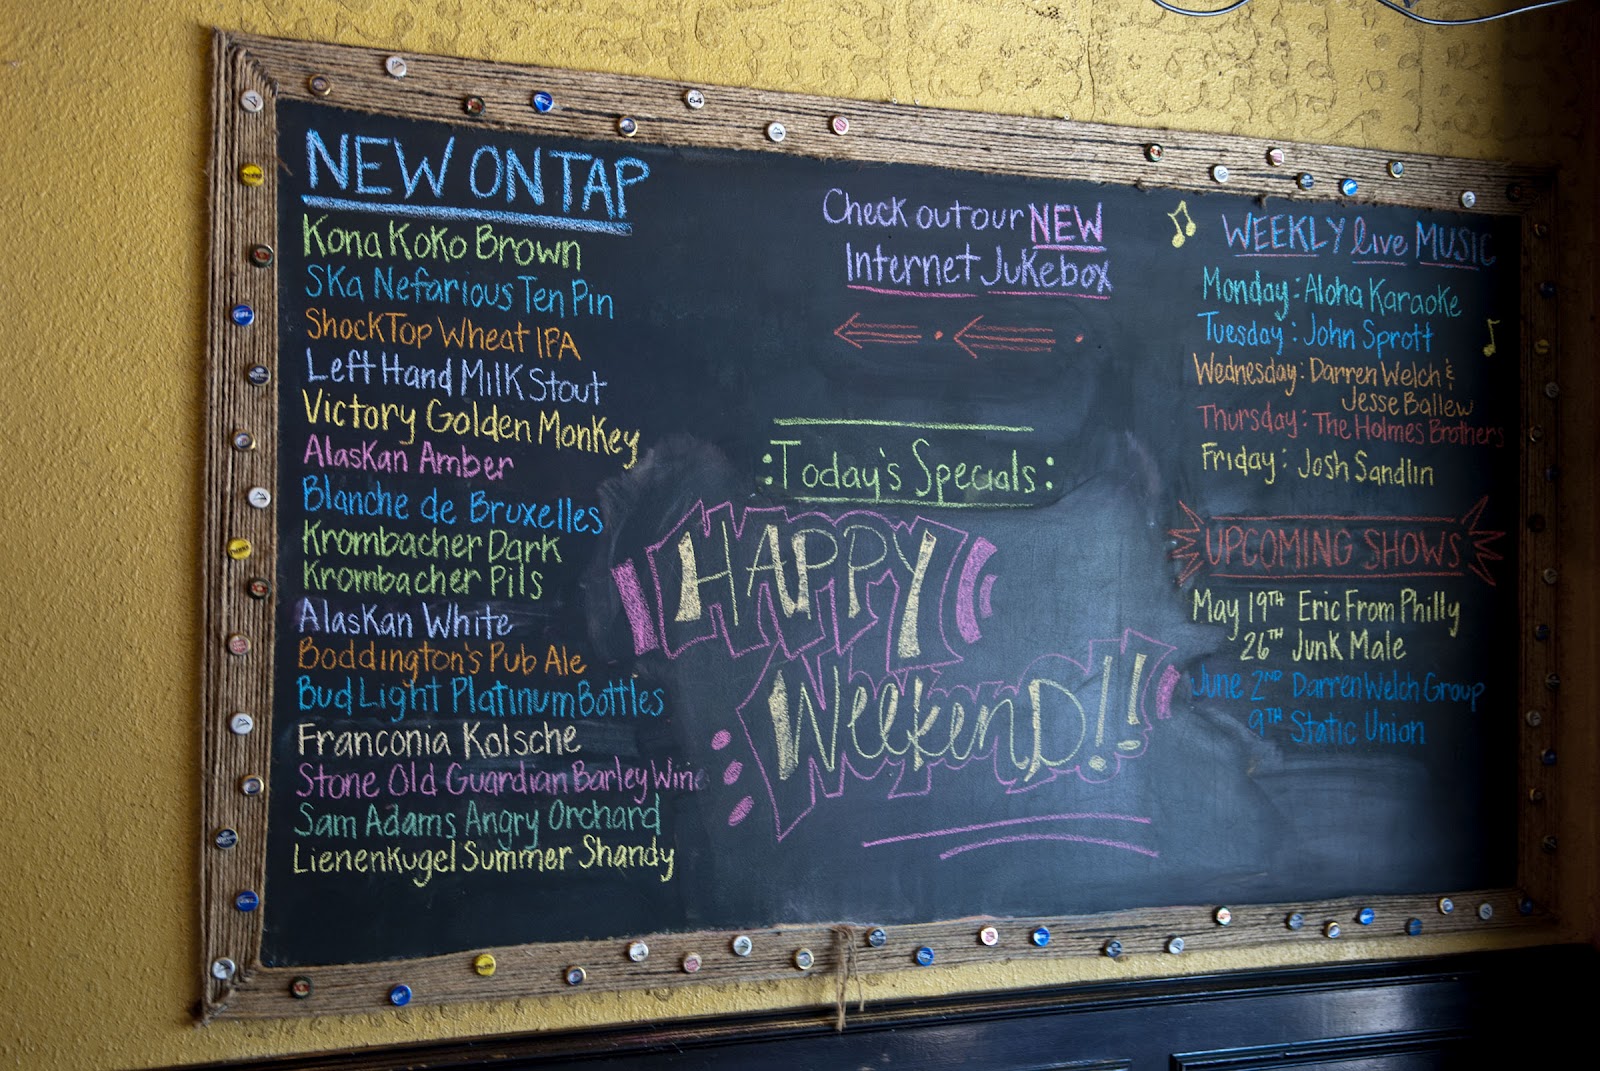 NEW ON TAP
Kona Koko Brown
Ska Nefarious Ten Pin
ShockTop Wheat IPA
Left Hand Milk Stout
Victory Golden Monkey
Alaskan Amber
Blanche de Bruxelles
Krombacher Dark
Krombacher Pils
Alaskan White
Boddington's Pub Ale
Bud Light Platinum Bottles
Franconia Kolsche
Stone Old Guardian Barley Wine
Sam Adams Angry Orchard
Lienenkugel Summer Shandy
Check out our NEW
Internet Jukebox
:Today's Specials:
HAPPY
WEEKEND!!
WEEKLY live MUSIC
Monday: Aloha Karaoke
Tuesday: John Sprott
Wednesday: Darren Welch &
Jesse Ballew
Thursday: The Holmes Brothers
Friday: Josh Sandlin
UPCOMING SHOWS
May 19TH Eric From Philly
26TH Junk Male
June 2ND Darren Welch Group
9TH Static Union